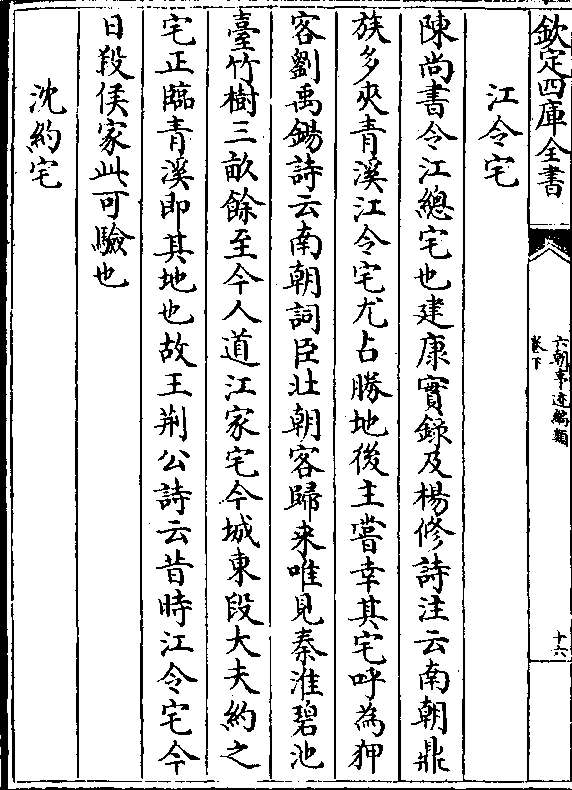 欽定四庫全書
六朝事迹編類
卷下
十六
江令宅
陳尚書令江總宅也建康實錄及楊修詩注云南朝鼎
族多夾青溪江令宅尤占勝地後主嘗幸其宅呼為狎
客劉禹錫詩云南朝詞臣北朝客歸来唯見秦淮碧池
臺竹樹三畝餘至今人道江家宅今城東段大夫約之
宅正臨青溪即其地也故王荆公詩云昔時江令宅今
日段侯家此可驗也
沈約宅